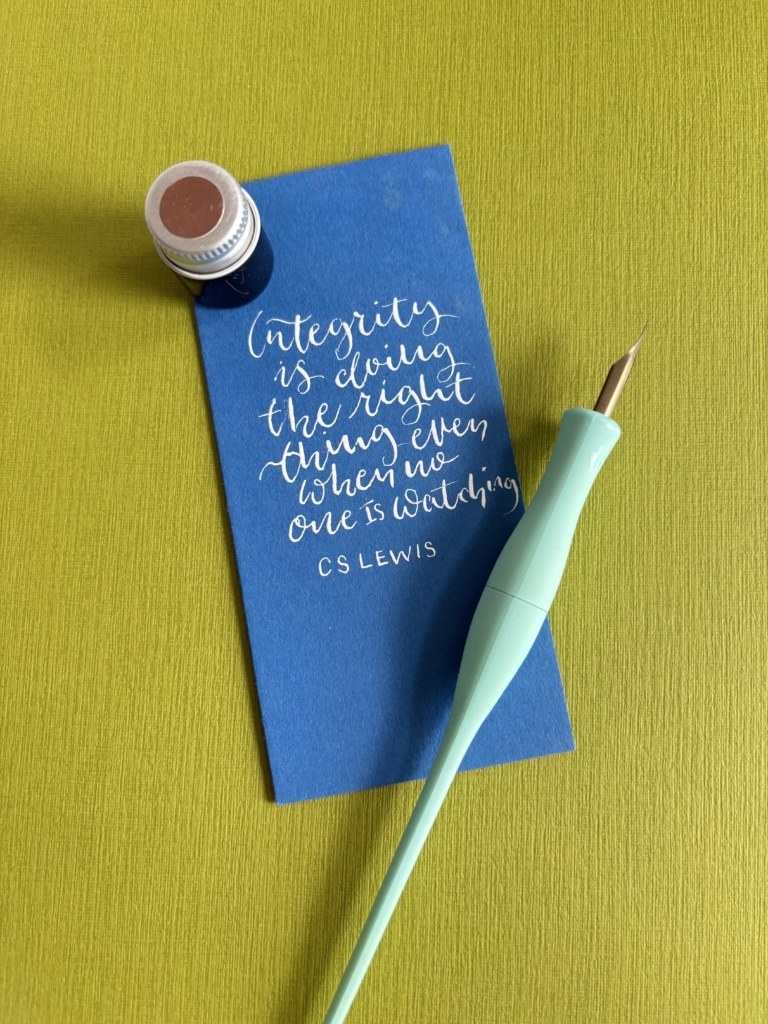 Integrity
is doing
the right
thing even
when no
one is watching
CS LEWIS